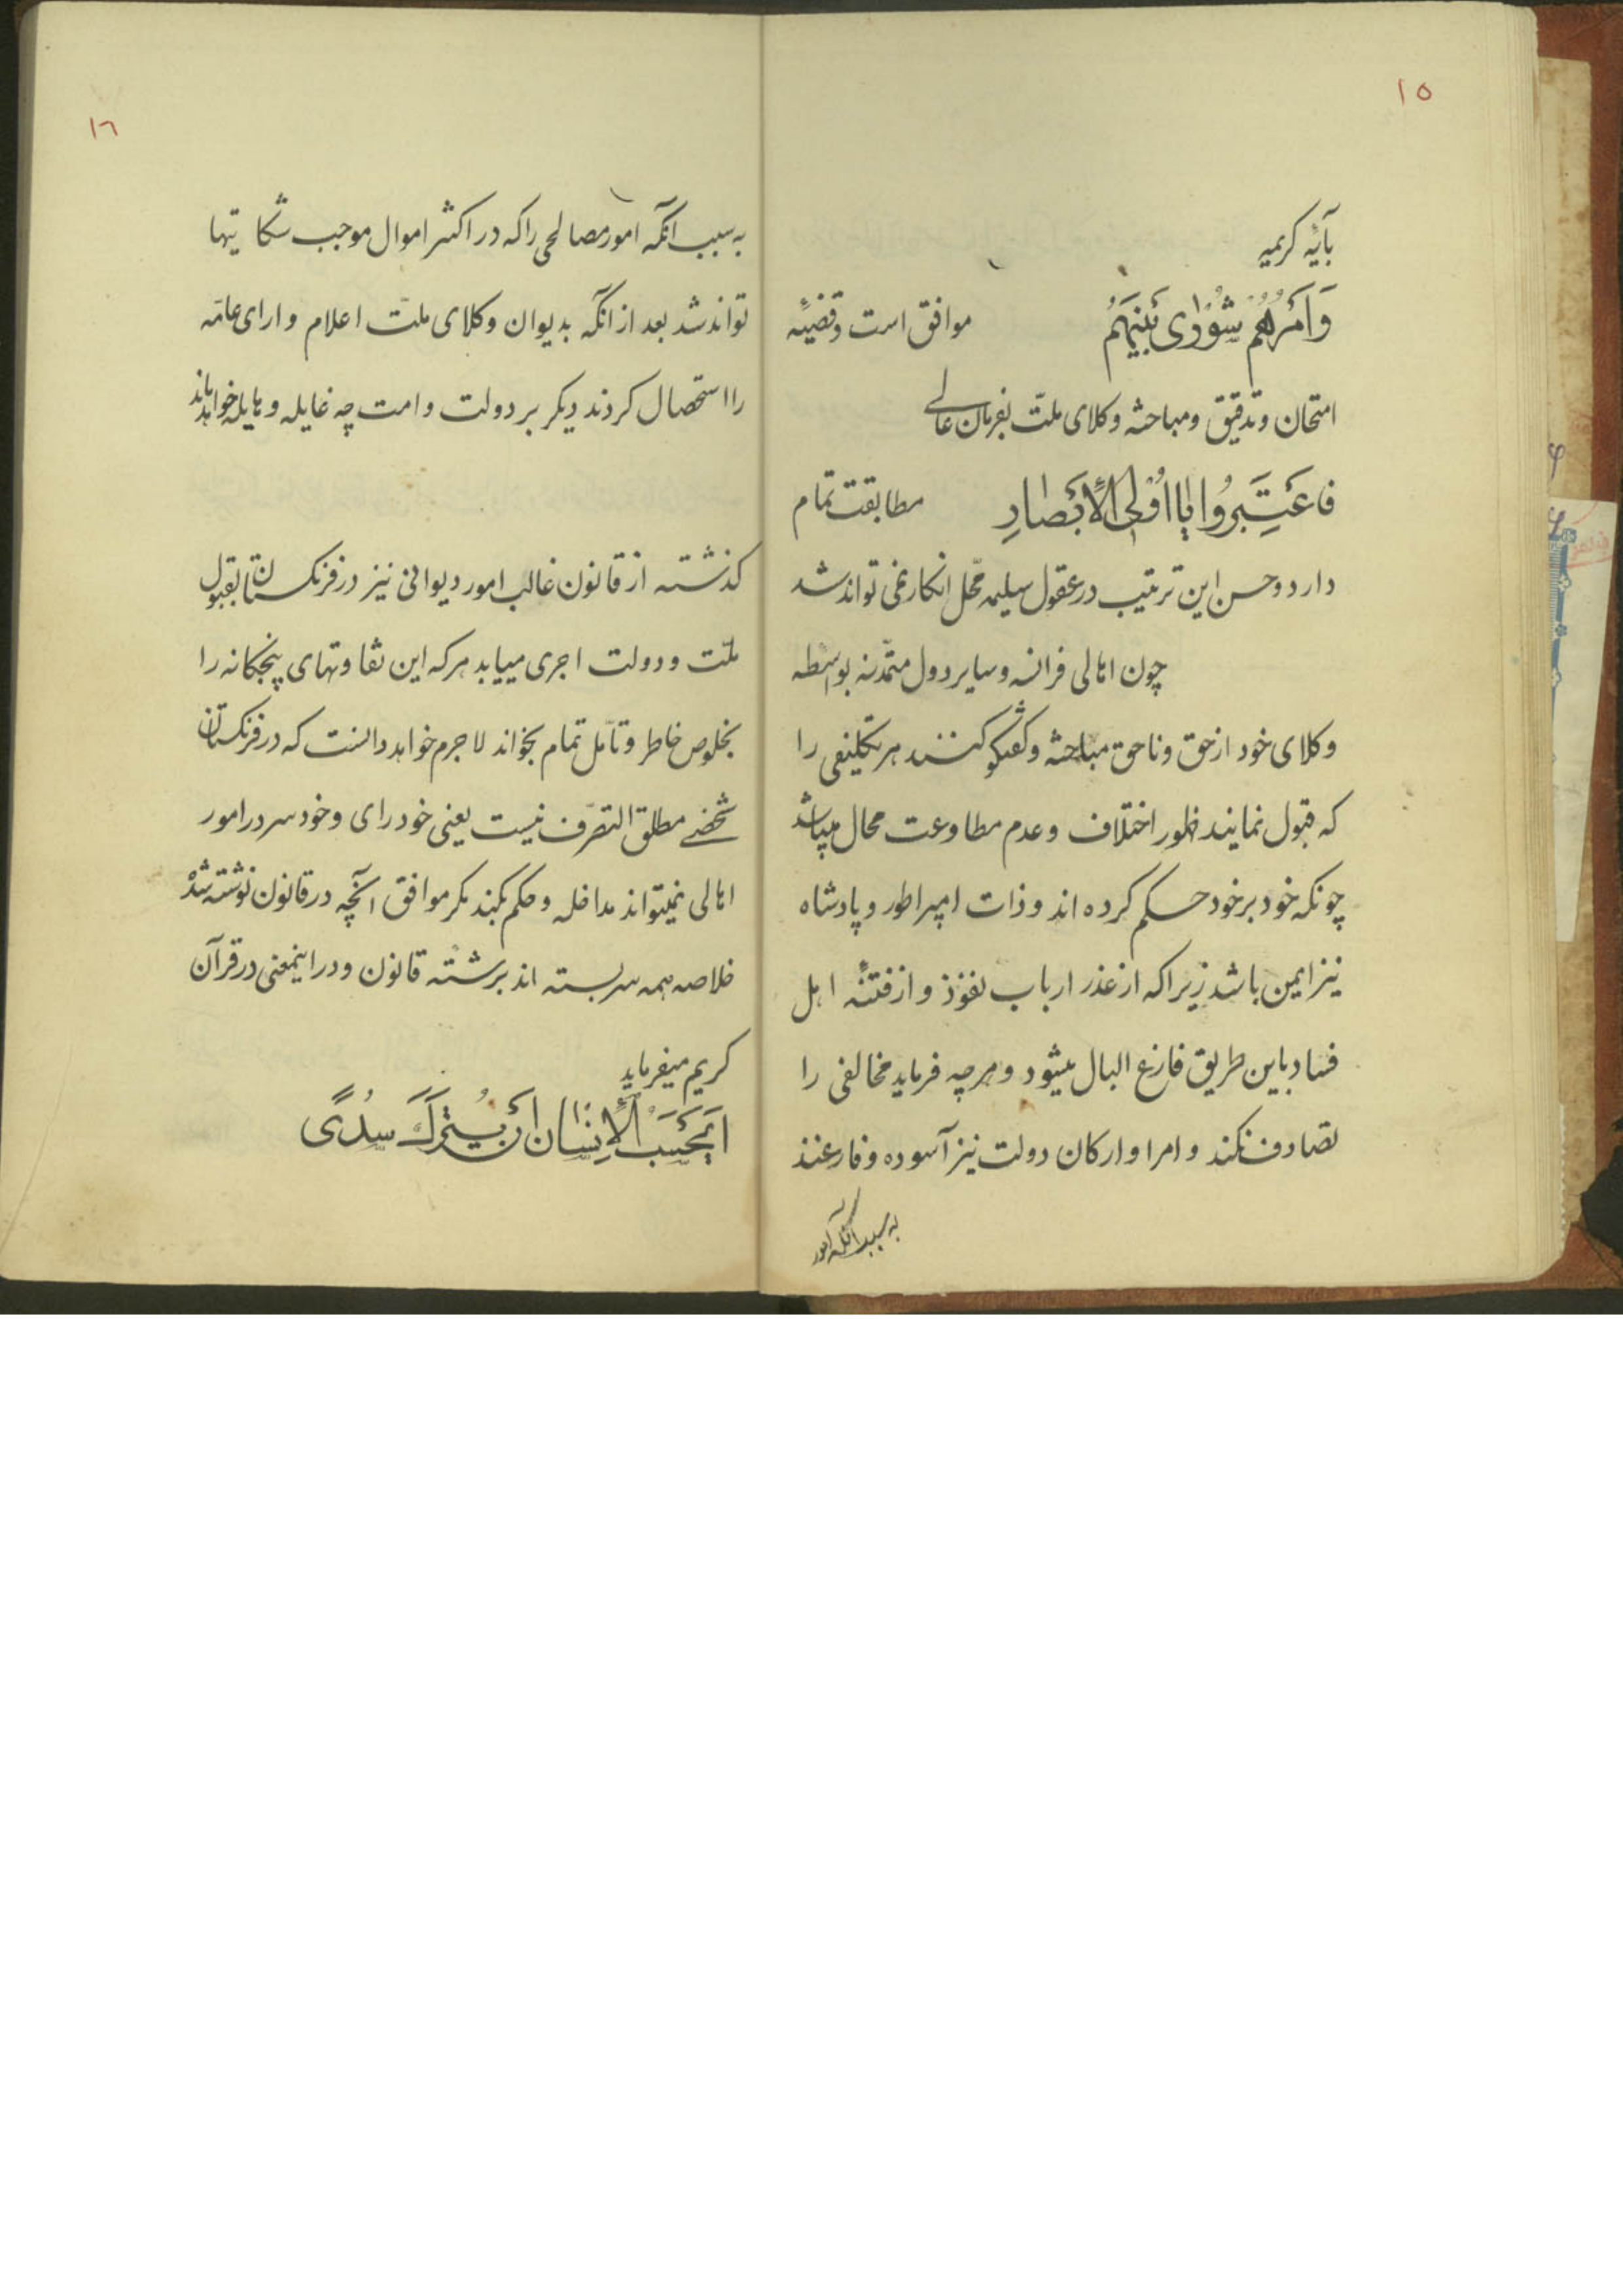 ۱۵
بآیه کریمه
وَاَمرُهُم شُورٰی بَینَهُم موافق است وقضیّه
امتحان و تدقیق و مباحثه وکلای ملّت بفرمان عالی
فاعتَبِرُوا یٰا اُولِی الاَبصٰارِ مطابقت تمام
دارد وحسن این ترتیب در عقول سلیمه محّل انکار نمی تواند شد
چون اهالی فرانسه وسایر دول متمدّنه بواسطه
وکلای خود از حق و ناحق مباحثه وکفتکو کنند هر تکلیفی را
که قبول نمایند ظهور اختلاف وعدم مطاوعت محال میباشد
چونکه خود بر خود حکم کرده اند و ذات امپراطور و پادشاه
نیز ایمن باشد زیرا که از غدر ارباب نفوذ و از فتنهٔ اهل
فساد باین طریق فارغ البال میشود و هرچه فرماید مخالفی را
تصادف نکند و امرا و ارکان دولت نیز آسوده و فارغند
به سبب آنکه امور
۱۶
به سبب آنکه امور مصالحی را که در اکثر اموال موجب شکایتها
تواند شد بعد از آنکه بدیوان وکلای ملّت اعلام و ارای عامّه
را استحصال کردند دیکر بر دولت و امت چه غایله و هایله خواهد ماند
کذشته از قانون غالب امور دیوانی نیز در فرنکستان بقبول
ملّت و دولت اجری مییابد هر که این تفاوتهای پنجکانه را
بخلوص خاطر و تأمّل تمام بخواند لاجرم خواهد دانست که در فرنکستان
شخصی مطلق التصرّف نیست یعنی خود رای و خود سر در امور
اهالی نمیتواند مداخله و حکم بکند مکر موافق آنچه در قانون نوشته شده
خلاصه همه سر بسته اند برشته قانون و در اینمعنی در قرآن
کریم میفرماید
اَیَحسَبُ الاِنسٰان اَن یُترَکَ سُدًی